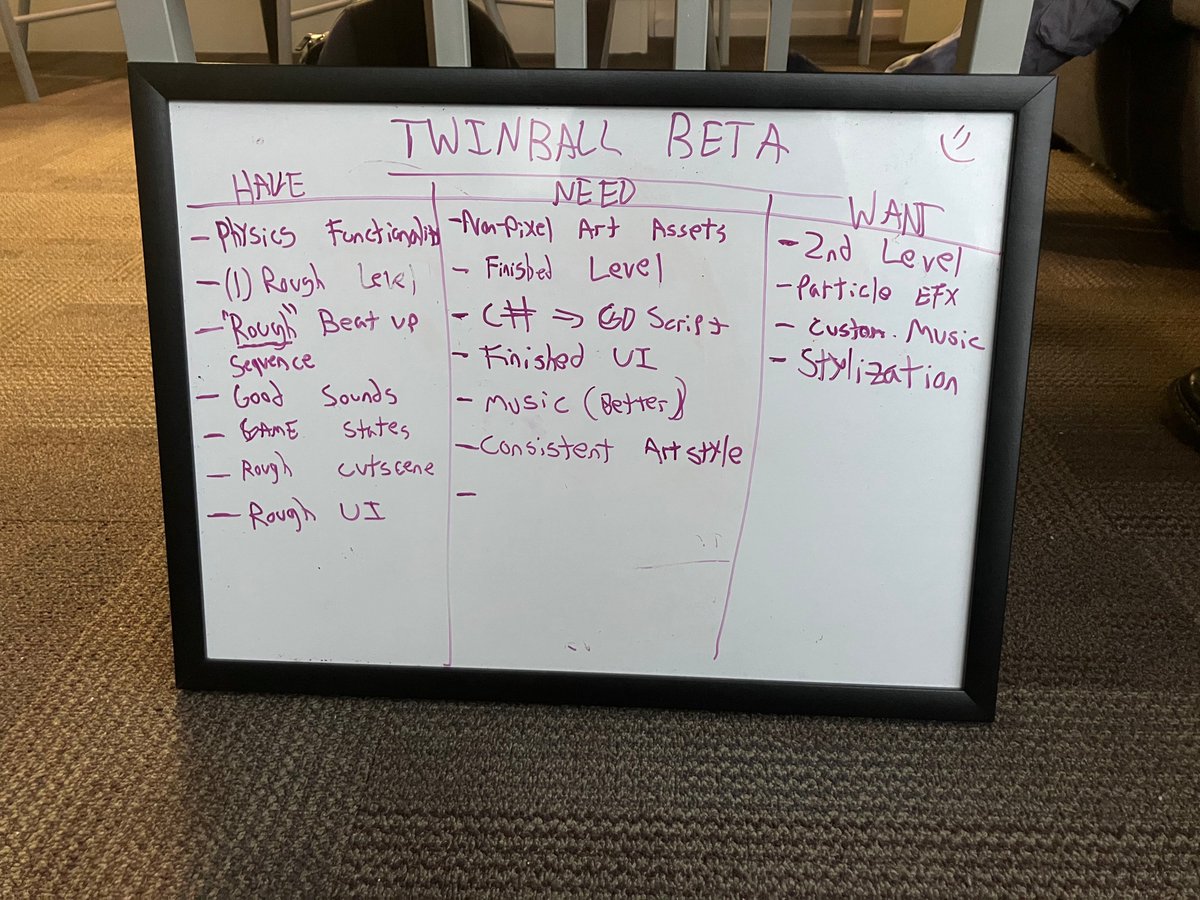 TWINBALL BETA
HAVE
- Physics Functionality
- (1) Rough Level
- "Rough" Beat up
Sequence
- Good Sounds
- GAME States
- Rough cutscene
- Rough UI
NEED
- Non-Pixel Art Assets
- Finished Level
- C# => GD Script
- Finished UI
- Music (Better)
- Consistent Artstyle
-
WANT
- 2nd Level
- Particle EFX
- Custom. Music
- Stylization